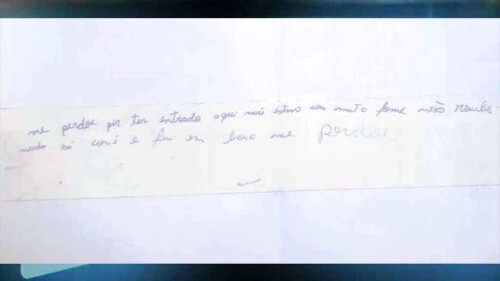 me perdoe por ter entrado aqui nois estava com muito fome não roubei
nada só comi e fui em bora me perdoe